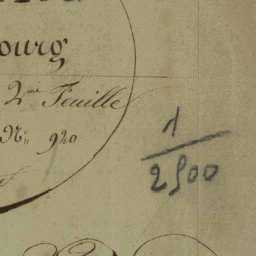 ourg
2me Feuille
No 920
1/2500